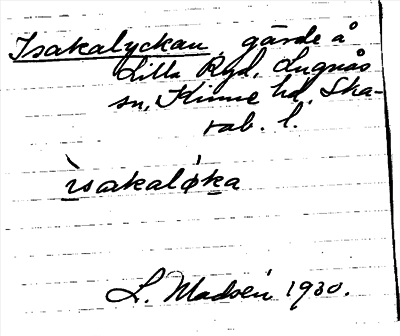 Isakalyckan, gärde å
Lilla Ryd, Lugnås
sn, Kinne hd. Ska-
rab. l.
ìsakaløka
L. Madsén 1930.